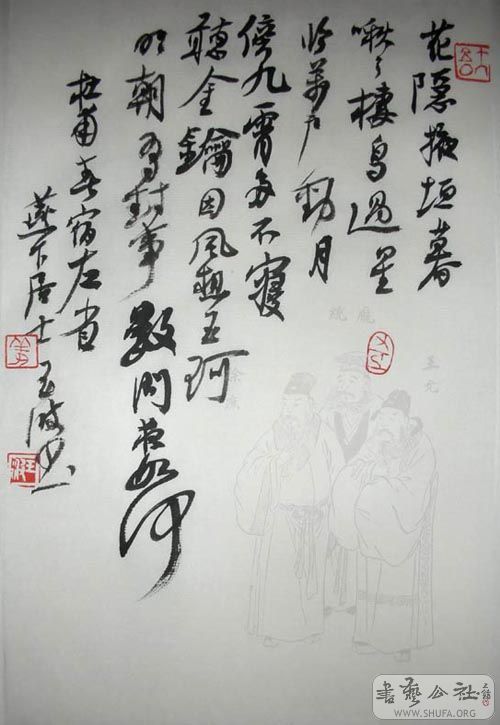 花隐掖垣暮
啾々棲鸟過星
临萬户動月
傍九霄多不寝
聽金鑰因风想玉珂
明朝有封事數问夜如何
杜甫春宿左省
燕下居士玉波书
龐統
王允
書藝公社
WWW.SHUFA.ORG